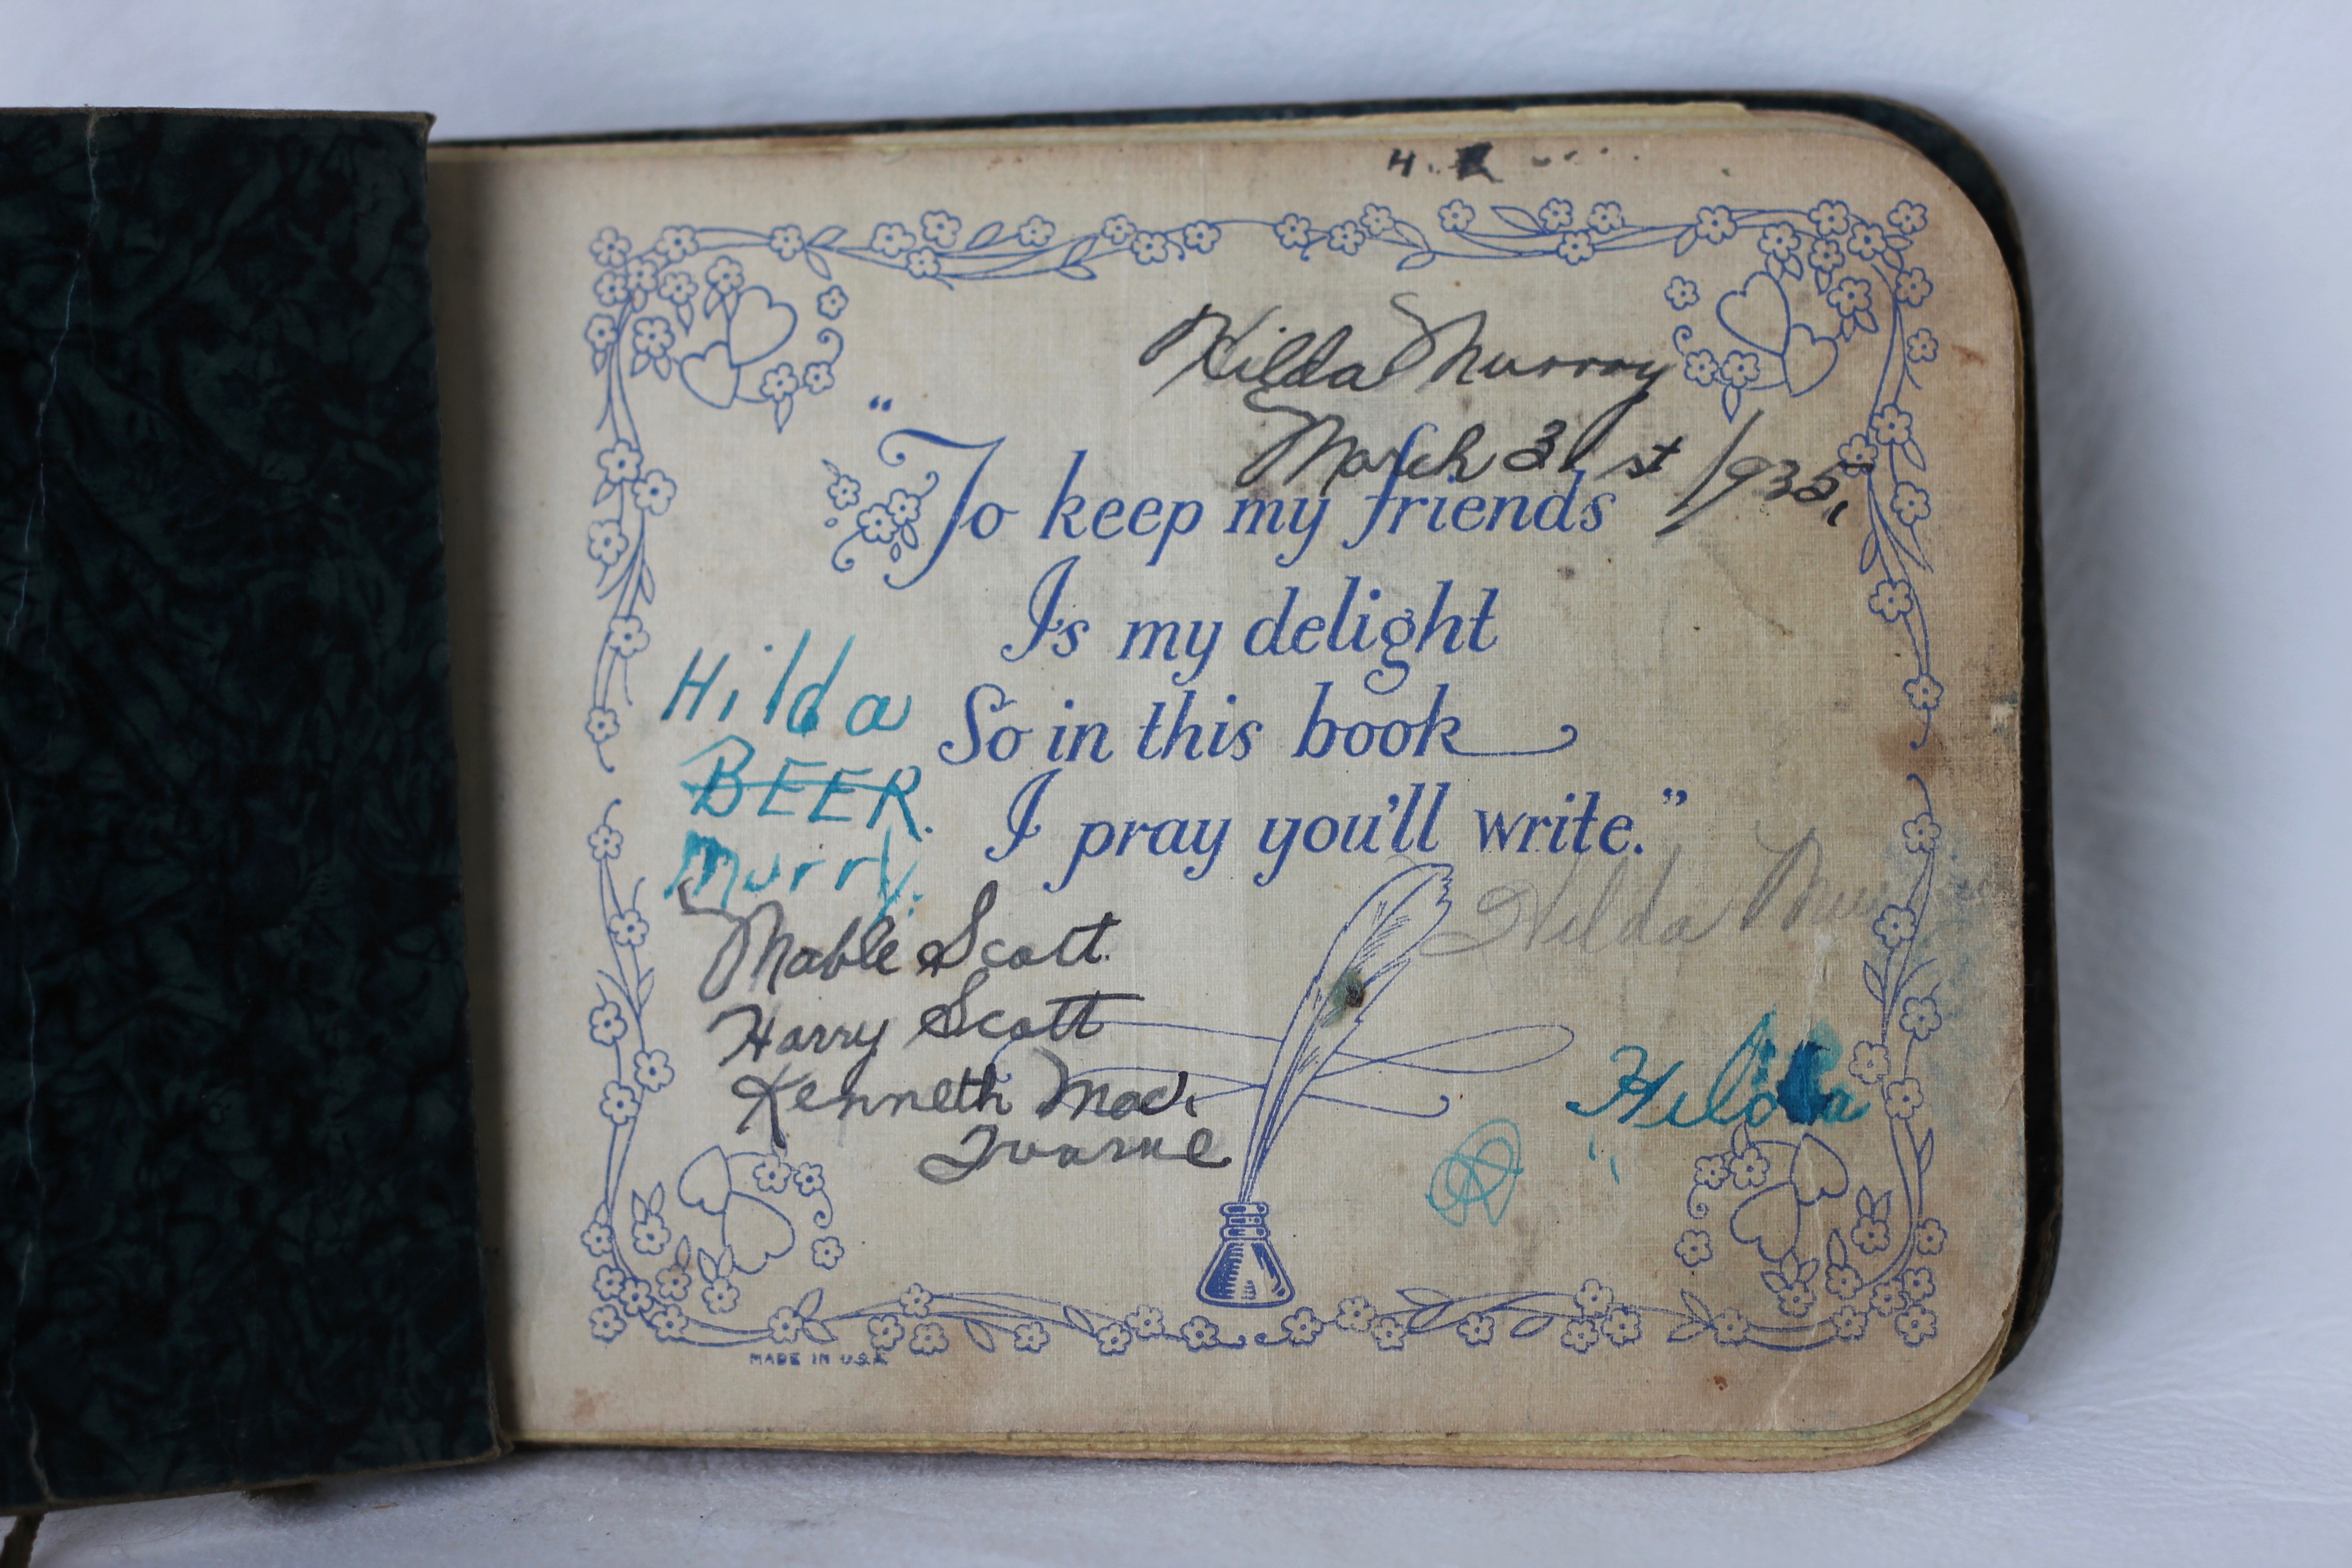 H.
Hilda Murray
March 31st 1935,
"To keep my friends
Is my delight
So in this book
I pray you'll write."
Hilda
BEER.
Murry.
Mable Scott.
Harry Scott
Kenneth Mac.
Hilda
Hilda
MADE IN U.S.A.